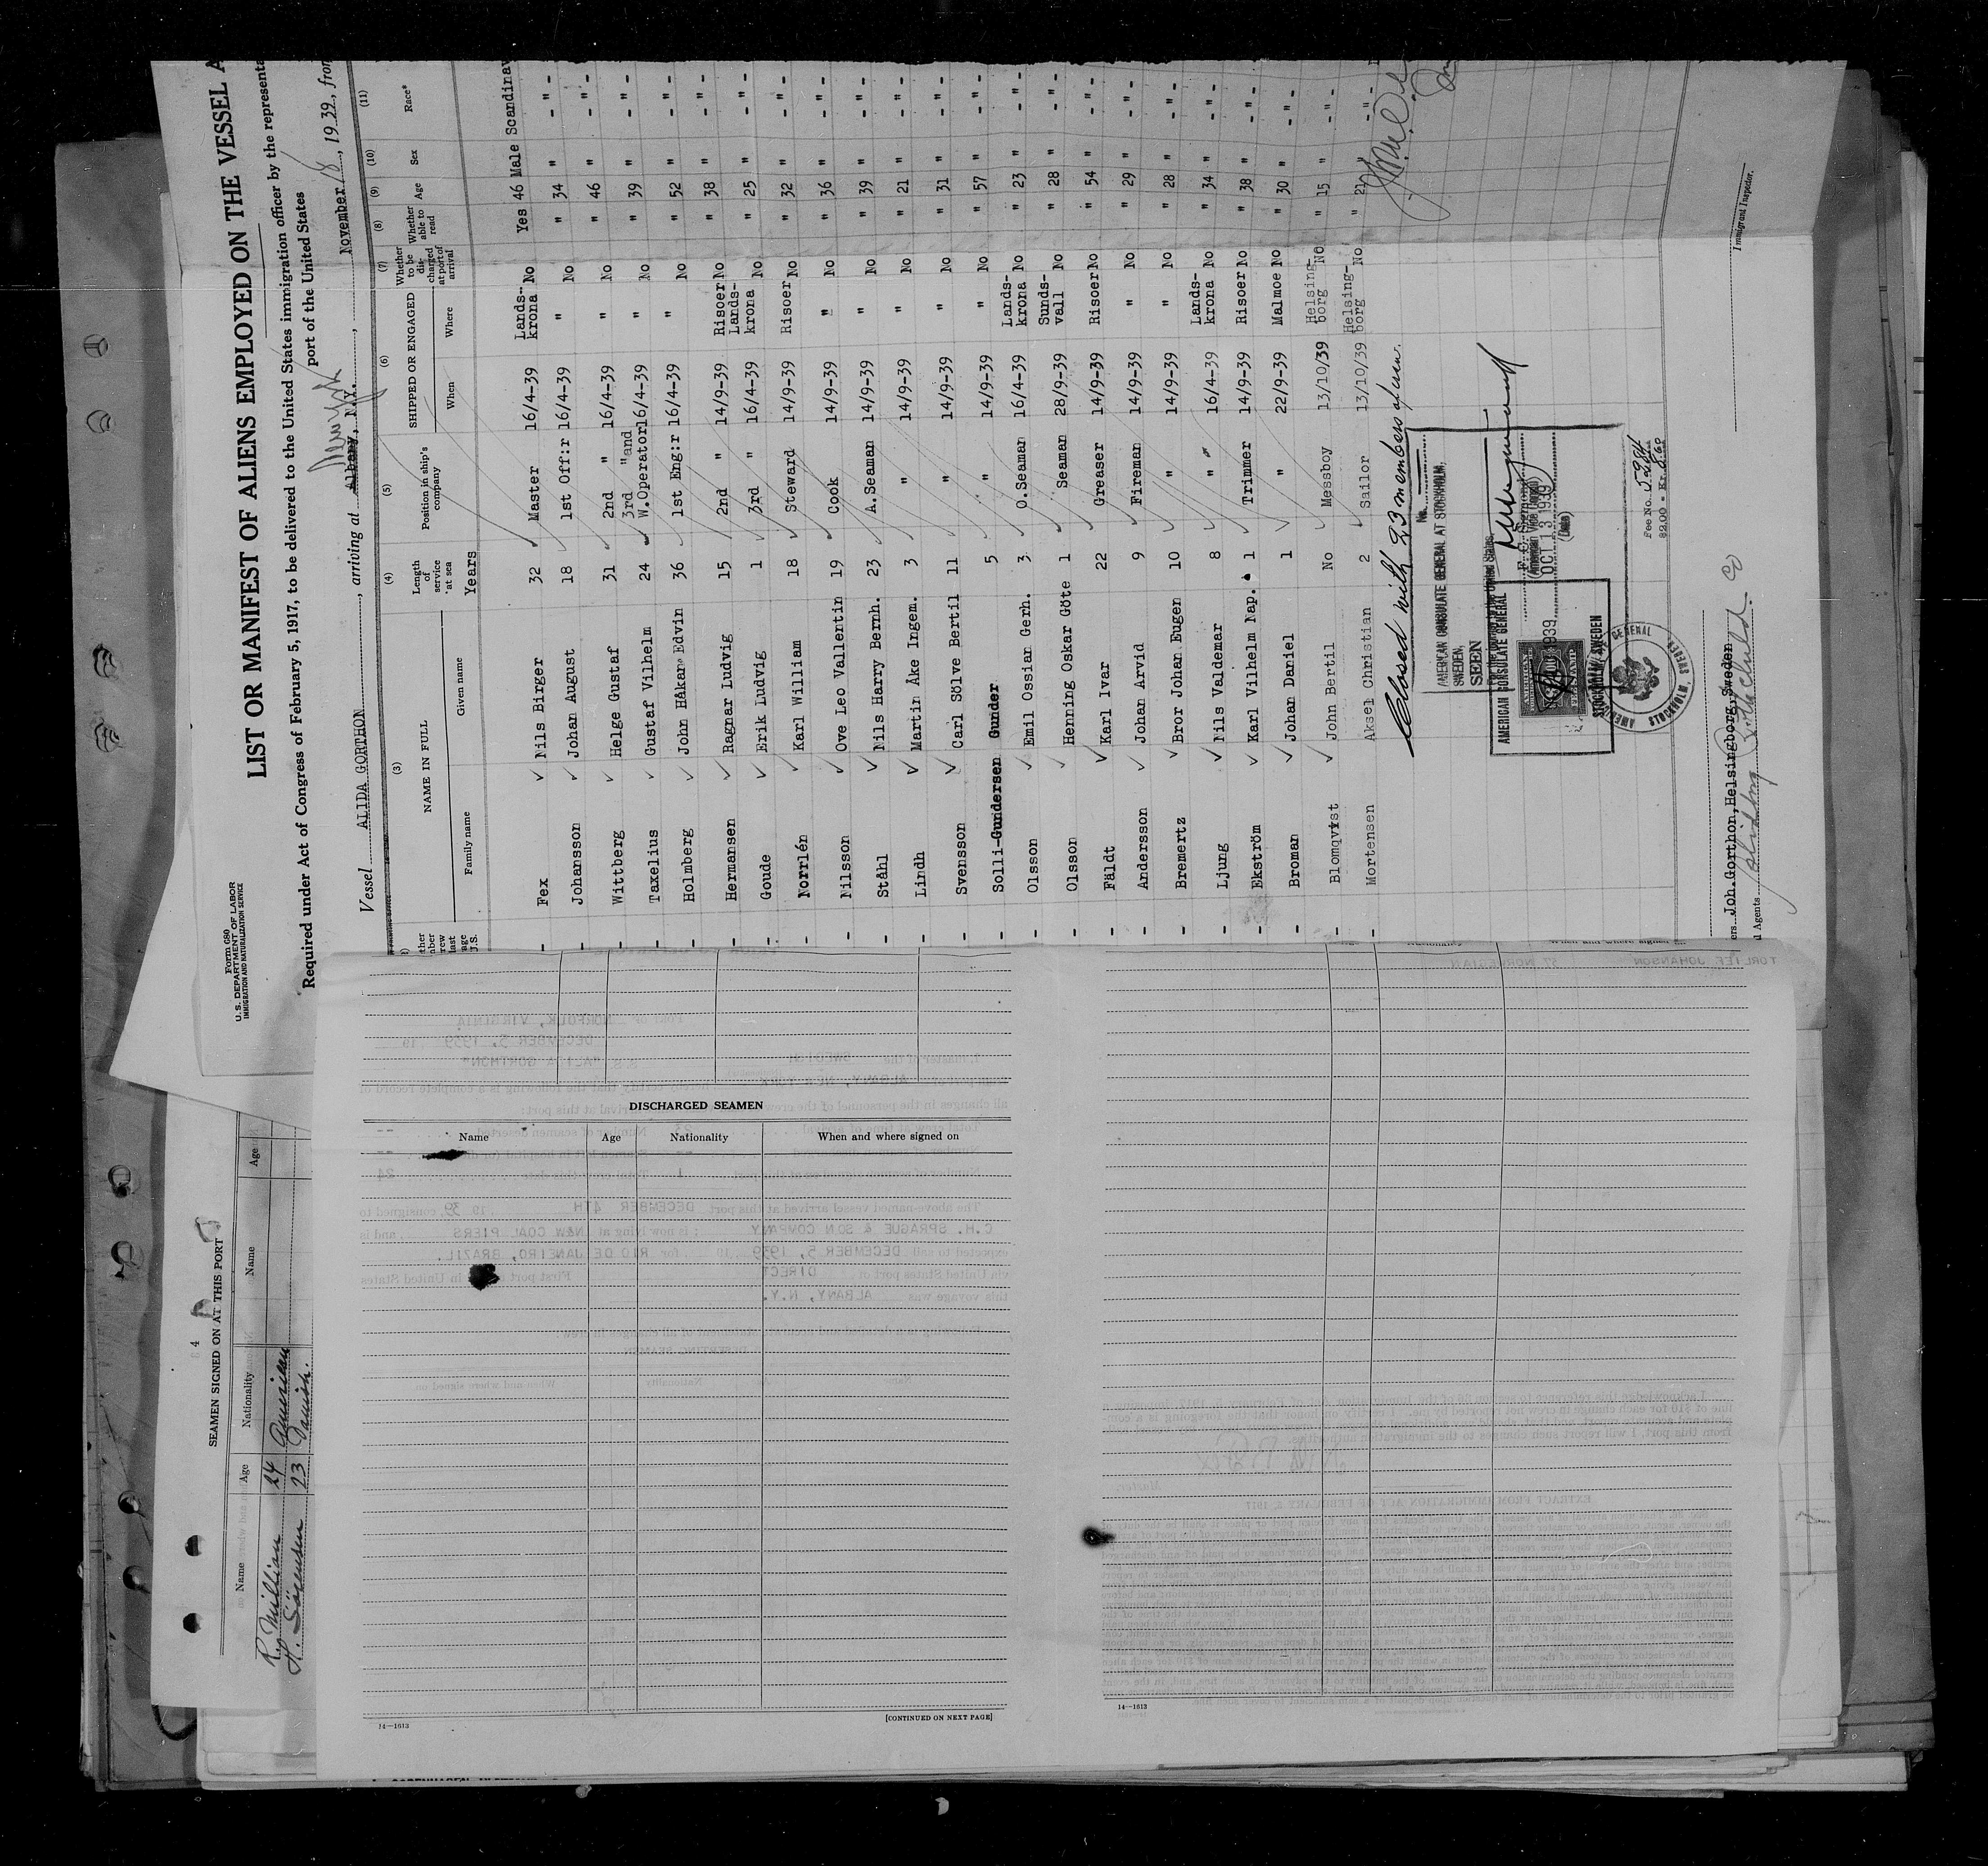 Form 680
U. S. DEPARTMENT OF LABOR
IMMIGRATION AND NATURALIZATION SERVICE
LIST OR MANIFEST OF ALIENS EMPLOYED ON THE VESSEL A
Required under Act of Congress of February 5, 1917, to be delivered to the United States immigration officer by the representa
port of the United States
Vessel ALIDA GORTHON, arriving at Albany, N.Y., November 18, 1939, from
(3) (4) (5) (6) (7) (8) (9) (10) (11)
NAME IN FULL
Family name Given name
Length of service at sea
Years
Position in ship's company
SHIPPED OR ENGAGED
When Where
Whether to be discharged at port of arrival
Whether able to read
Age Sex Race*
- Fex Nils Birger 32 Master 16/4-39 Lands-krona No Yes 46 Male Scandinav
- Johansson Johan August 18 1st Off:r 16/4-39 " No " 34 " -"-
- Wittberg Helge Gustaf 31 2nd " 16/4-39 " No " 46 " -"-
- Taxelius Gustaf Vilhelm 24 3rd "and W.Operator 16/4-39 " No " 39 " -"-
- Holmberg John Håkan Edvin 36 1st Eng:r 16/4-39 " No " 52 " -"-
- Hermansen Ragnar Ludvig 15 2nd " 14/9-39 Risoer No " 38 " -"-
- Goude Erik Ludvig 1 3rd " 16/4-39 Lands-krona No " 25 " -"-
- Norrlén Karl William 18 Steward 14/9-39 Risoer No " 32 " -"-
- Nilsson Ove Leo Vallentin 19 Cook 14/9-39 " No " 36 " -"-
- Ståhl Nils Harry Bernh. 23 A.Seaman 14/9-39 " No " 39 " -"-
- Lindh Martin Åke Ingem. 3 " 14/9-39 " No " 21 " -"-
- Svensson Carl Sölve Bertil 11 " 14/9-39 " No " 31 " -"-
- Solli-Gundersen Gunder 5 " 14/9-39 " No " 57 " -"-
- Olsson Emil Ossian Gerh. 3 O.Seaman 16/4-39 Lands-krona No " 23 " -"-
- Olsson Henning Oskar Göte 1 Seaman 28/9-39 Sunds-vall No " 28 " -"-
- Fäldt Karl Ivar 22 Greaser 14/9-39 Risoer No " 54 " -"-
- Andersson Johan Arvid 9 Fireman 14/9-39 " No " 29 " -"-
- Bremertz Bror Johan Eugen 10 " 14/9-39 " No " 28 " -"-
- Ljung Nils Valdemar 8 " 16/4-39 Lands-krona No " 34 " -"-
- Ekström Karl Vilhelm Nap. 1 Trimmer 14/9-39 Risoer No " 38 " -"-
- Broman Johan Daniel 1 " 22/9-39 Malmoe No " 30 " -"-
- Blomqvist John Bertil No Messboy 13/10/39 Helsing-borg No " 15 " -"-
- Mortensen Aksel Christian 2 Sailor 13/10/39 Helsing-borg No " 21 " -"-
Closed with 23 members of crew.
No.
AMERICAN CONSULATE GENERAL AT STOCKHOLM,
SWEDEN.
SEEN
For the journey to the United States
American Vice Consul
OCT 13 1939
(Date)
AMERICAN CONSULATE GENERAL
STOCKHOLM, SWEDEN
Fee No. 5954
$2.00 = Kr. 8.60
Joh.Gorthon, Helsingborg, Sweden
Immigrant Inspector.
SEAMEN SIGNED ON AT THIS PORT
Name Age Nationality Name Age
Millian 24 American
H. Sörensen 23 Danish.
DISCHARGED SEAMEN
Name Age Nationality When and where signed on
14—1613
[CONTINUED ON NEXT PAGE]
14—1613